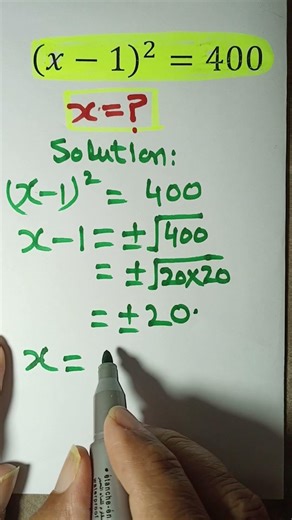 (x − 1)² = 400
x = ?
Solution:
(x-1)² = 400
x-1 = ±√400
= ±√20×20
= ±20.
x =